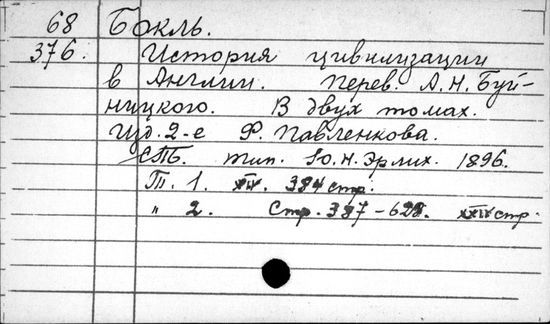 68 Бокль.
376. История цивилизации
в Англии. Перев. А.Н. Буй-
ницкого. В двух томах.
Изд. 2-е Ф. Павленкова.
СПБ. тип. Ю.Н. Эрлих. 1896.
Т. 1. XIV. 384 стр.
" 2. Стр. 387-628. XXIV стр.